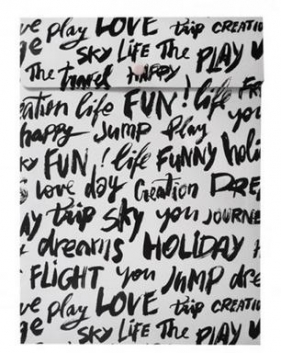 ve play LOVE trip CREATIO
ge SKY LIFE The PLAY
The travel HAPPY
eation life FUN! life FR
happy Jump Play you
KY FUN! life FUNNY Holi
love day Creation DRE
AY trip SKY you JOURNE
dreams HOLIDAY
FLIGHT you JUMP dre
ve play LOVE trip CREATIO
ge SKY LIFE The PLAY